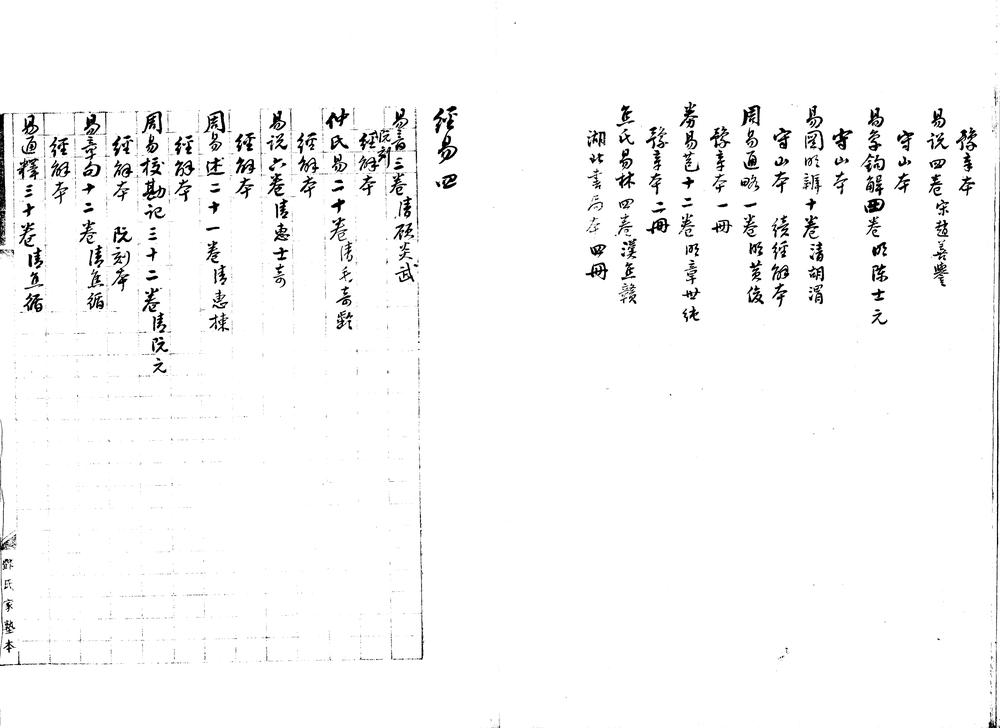 豫章本
易说四卷宋趙善譽
守山本
易象鈎解四卷明陈士元
守山本
易圖明辨十卷清胡渭
守山本 續經解本
周易通略一卷明黄俊
豫章本一冊
券易苞十二卷明章世纯
豫章本二冊
焦氏易林四卷漢焦贛
湖北書局本四冊
經易四
易音三卷清顾炎武
經解本 阮刻
仲氏易二十卷清毛奇齡
經解本
易说六卷清惠士奇
經解本
周易述二十一卷清惠棟
經解本
周易校勘记三十二卷清阮元
經解本 阮刻本
易章句十二卷清焦循
經解本
易通釋三十卷清焦循
鄧氏家塾本